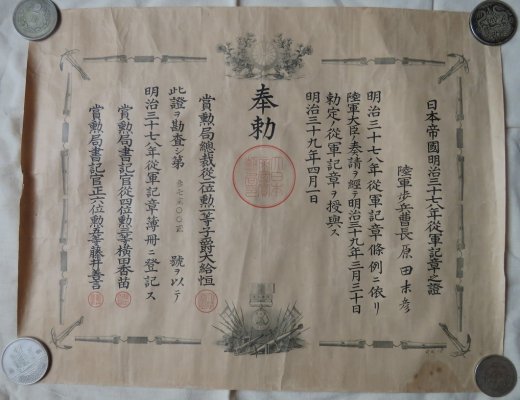 日本帝國明治三十七八年從軍記章之證
陸軍歩兵曹長原田末彦
明治三十七八年從軍記章條例ニ依リ
陸軍大臣ノ奏請ヲ經テ明治三十九年三月三十日
勅定ノ從軍記章ヲ授與ス
明治三十九年四月一日
奉勅
賞勲局總裁從二位勲一等子爵大給恒
此證ヲ勘査シ第 號ヲ以テ
明治三十七八年從軍記章簿冊ニ登記ス
賞勲局書記官從四位勲三等横田香苗
賞勲局書記官正六位勲五等藤井善言